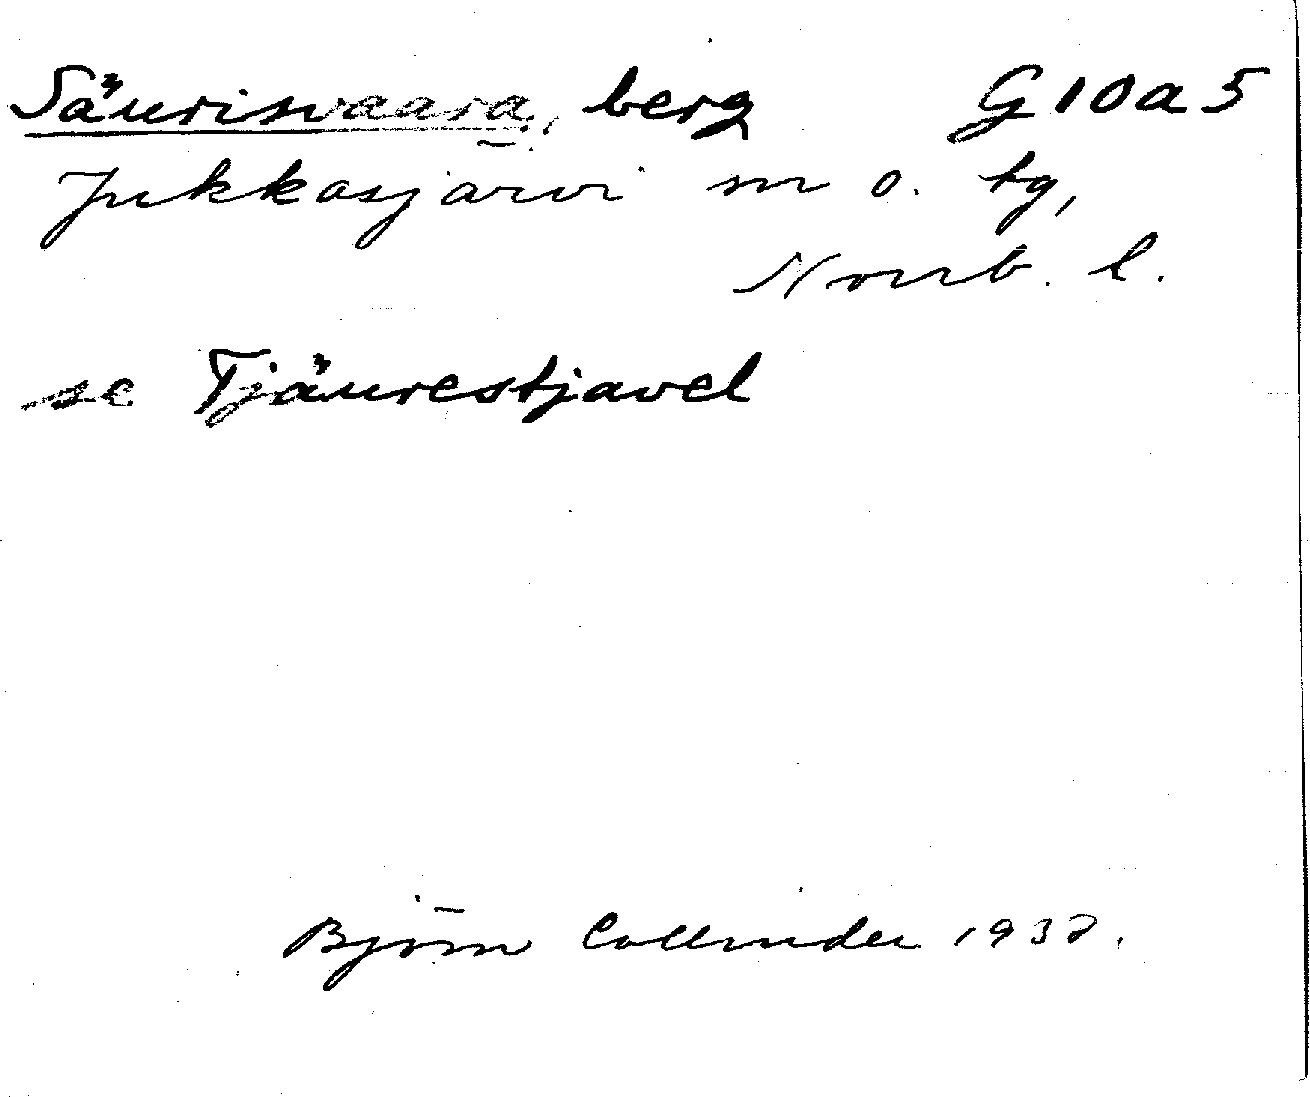 Säurisvaara, berg G10a5
Jukkasjärvi sn o. tg,
Norrb. l.
se Tjäurestjavel
Björn Collinder 1932.